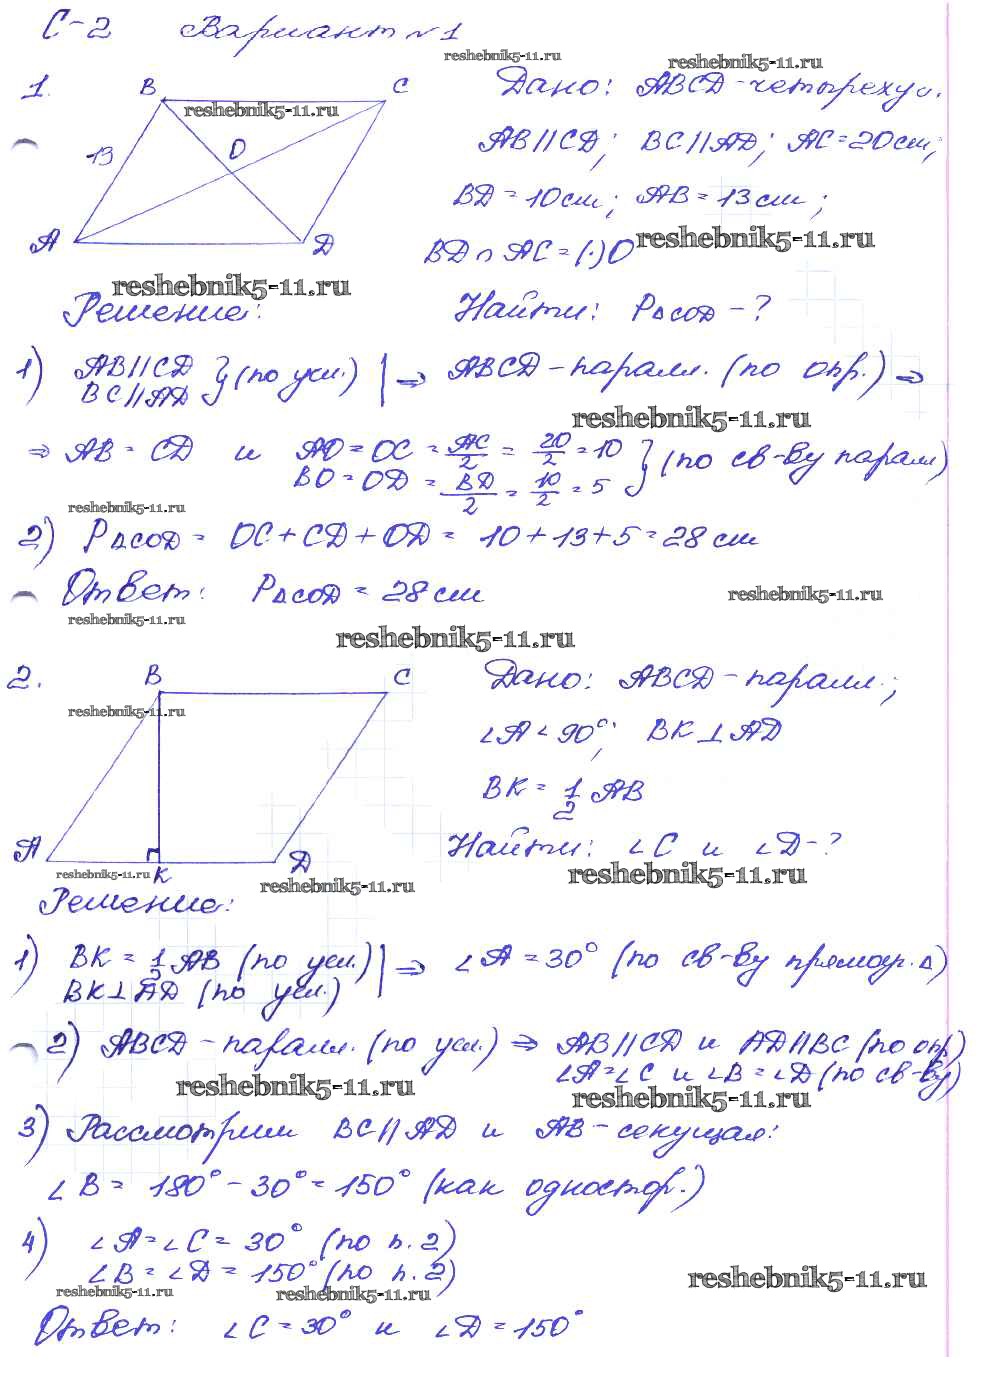 С-2 Вариант №1
reshebnik5-11.ru
reshebnik5-11.ru
1.
B
C
reshebnik5-11.ru
13
O
A
D
Дано: ABCD-четыреху г.
AB||CD; BC||AD; AC=20см;
BD=10см; AB=13см;
reshebnik5-11.ru
BD∩AC=(·)O
reshebnik5-11.ru
Решение:
Найти: P△COD-?
1) AB||CD
BC||AD } (по усл.) | ⇒ ABCD-паралл. (по опр.) ⇒
reshebnik5-11.ru
⇒ AB = CD и AO=OC = AC/2 = 20/2 = 10
BO=OD = BD/2 = 10/2 = 5 } (по св-ву паралл)
reshebnik5-11.ru
2) P△COD = OC+CD+OD = 10+13+5=28см
Ответ: P△COD = 28см
reshebnik5-11.ru
reshebnik5-11.ru
reshebnik5-11.ru
2.
B
C
reshebnik5-11.ru
A
K
D
reshebnik5-11.ru
reshebnik5-11.ru
Дано: ABCD-паралл.;
∠A<90°; BK⊥AD
BK = 1/2 AB
Найти: ∠C и ∠D-?
reshebnik5-11.ru
Решение:
1) BK = 1/2 AB (по усл.)
BK⊥AD (по усл.) | ⇒ ∠A=30° (по св-ву прямоуг.△)
2) ABCD-паралл. (по усл.) ⇒ AB||CD и AD||BC (по опр)
∠A=∠C и ∠B=∠D (по св-ву)
reshebnik5-11.ru
reshebnik5-11.ru
3) Рассмотрим BC||AD и AB-секущая:
∠B = 180°-30°=150° (как одностор.)
4) ∠A=∠C = 30° (по п.2)
∠B=∠D=150° (по п.2)
reshebnik5-11.ru
reshebnik5-11.ru
reshebnik5-11.ru
Ответ: ∠C=30° и ∠D=150°